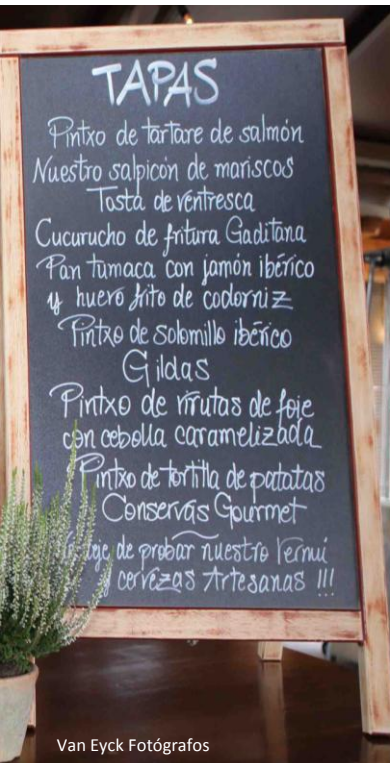 TAPAS
Pintxo de tartare de salmón
Nuestro salpicón de mariscos
Tosta de ventresca
Cucurucho de fritura Gaditana
Pan tumaca con jamón ibérico
y huevo frito de codorniz
Pintxo de solomillo ibérico
Gildas
Pintxo de virutas de foie
con cebolla caramelizada
Pintxo de tortilla de patatas
Conservas Gourmet
de probar nuestro Vermú
y cervezas Artesanas !!!
Van Eyck Fotógrafos